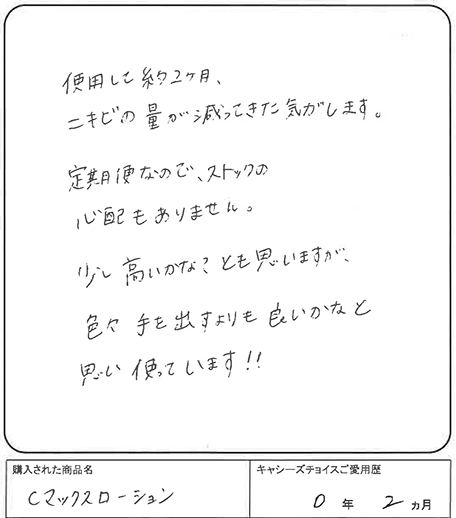 使用して約2ヶ月、
ニキビの量が減ってきた気がします。
定期便なので、ストックの
心配もありません。
少し高いかな？とも思いますが、
色々手を出すよりも良いかなと
思い使っています!!
購入された商品名
Cマックスローション
キャシーズチョイスご愛用歴
0年2ヵ月